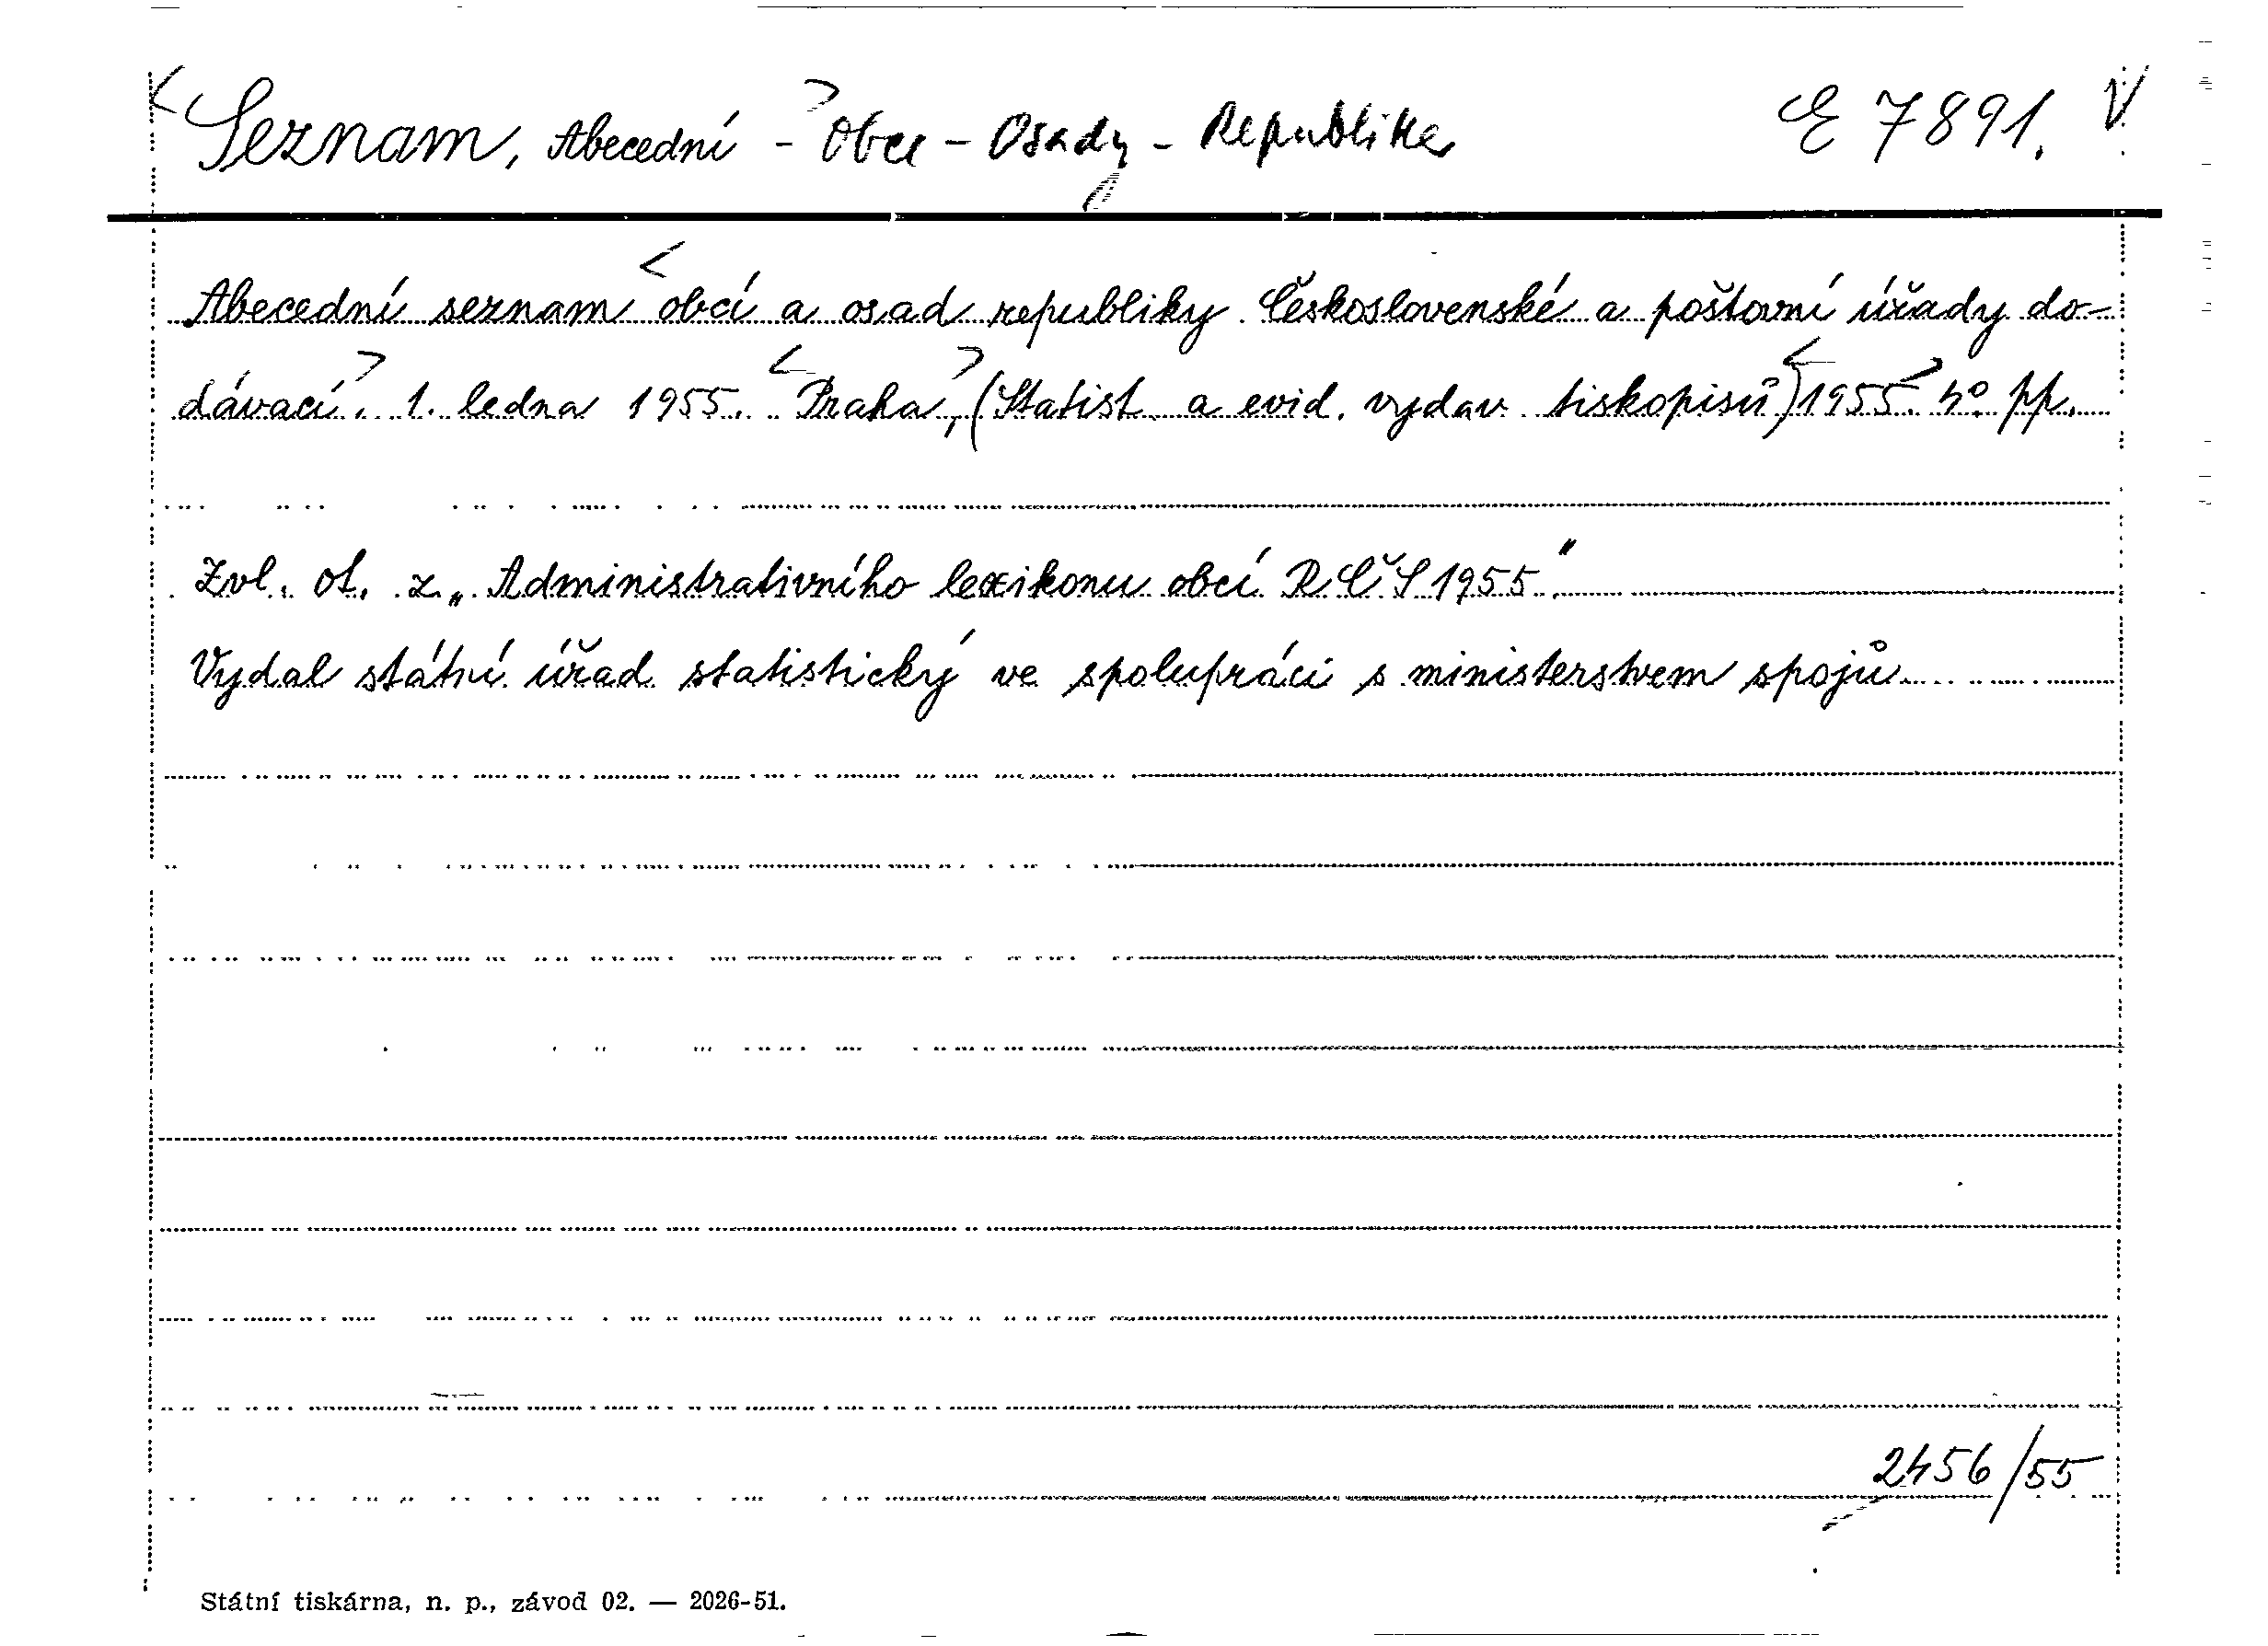 Seznam, Abecední - Obce - Osady - Republika E 7891. V
Abecední seznam obcí a osad republiky Československé a poštovní úřady do-
dávací. 1. ledna 1955. Praha, (Statist. a evid. vydav. tiskopisů) 1955. 4° pp.
Zvl. ot. z „Administrativního lexikonu obcí RČS 1955."
Vydal státní úřad statistický ve spolupráci s ministerstvem spojů
2456/55
Státní tiskárna, n. p., závod 02. — 2026-51.